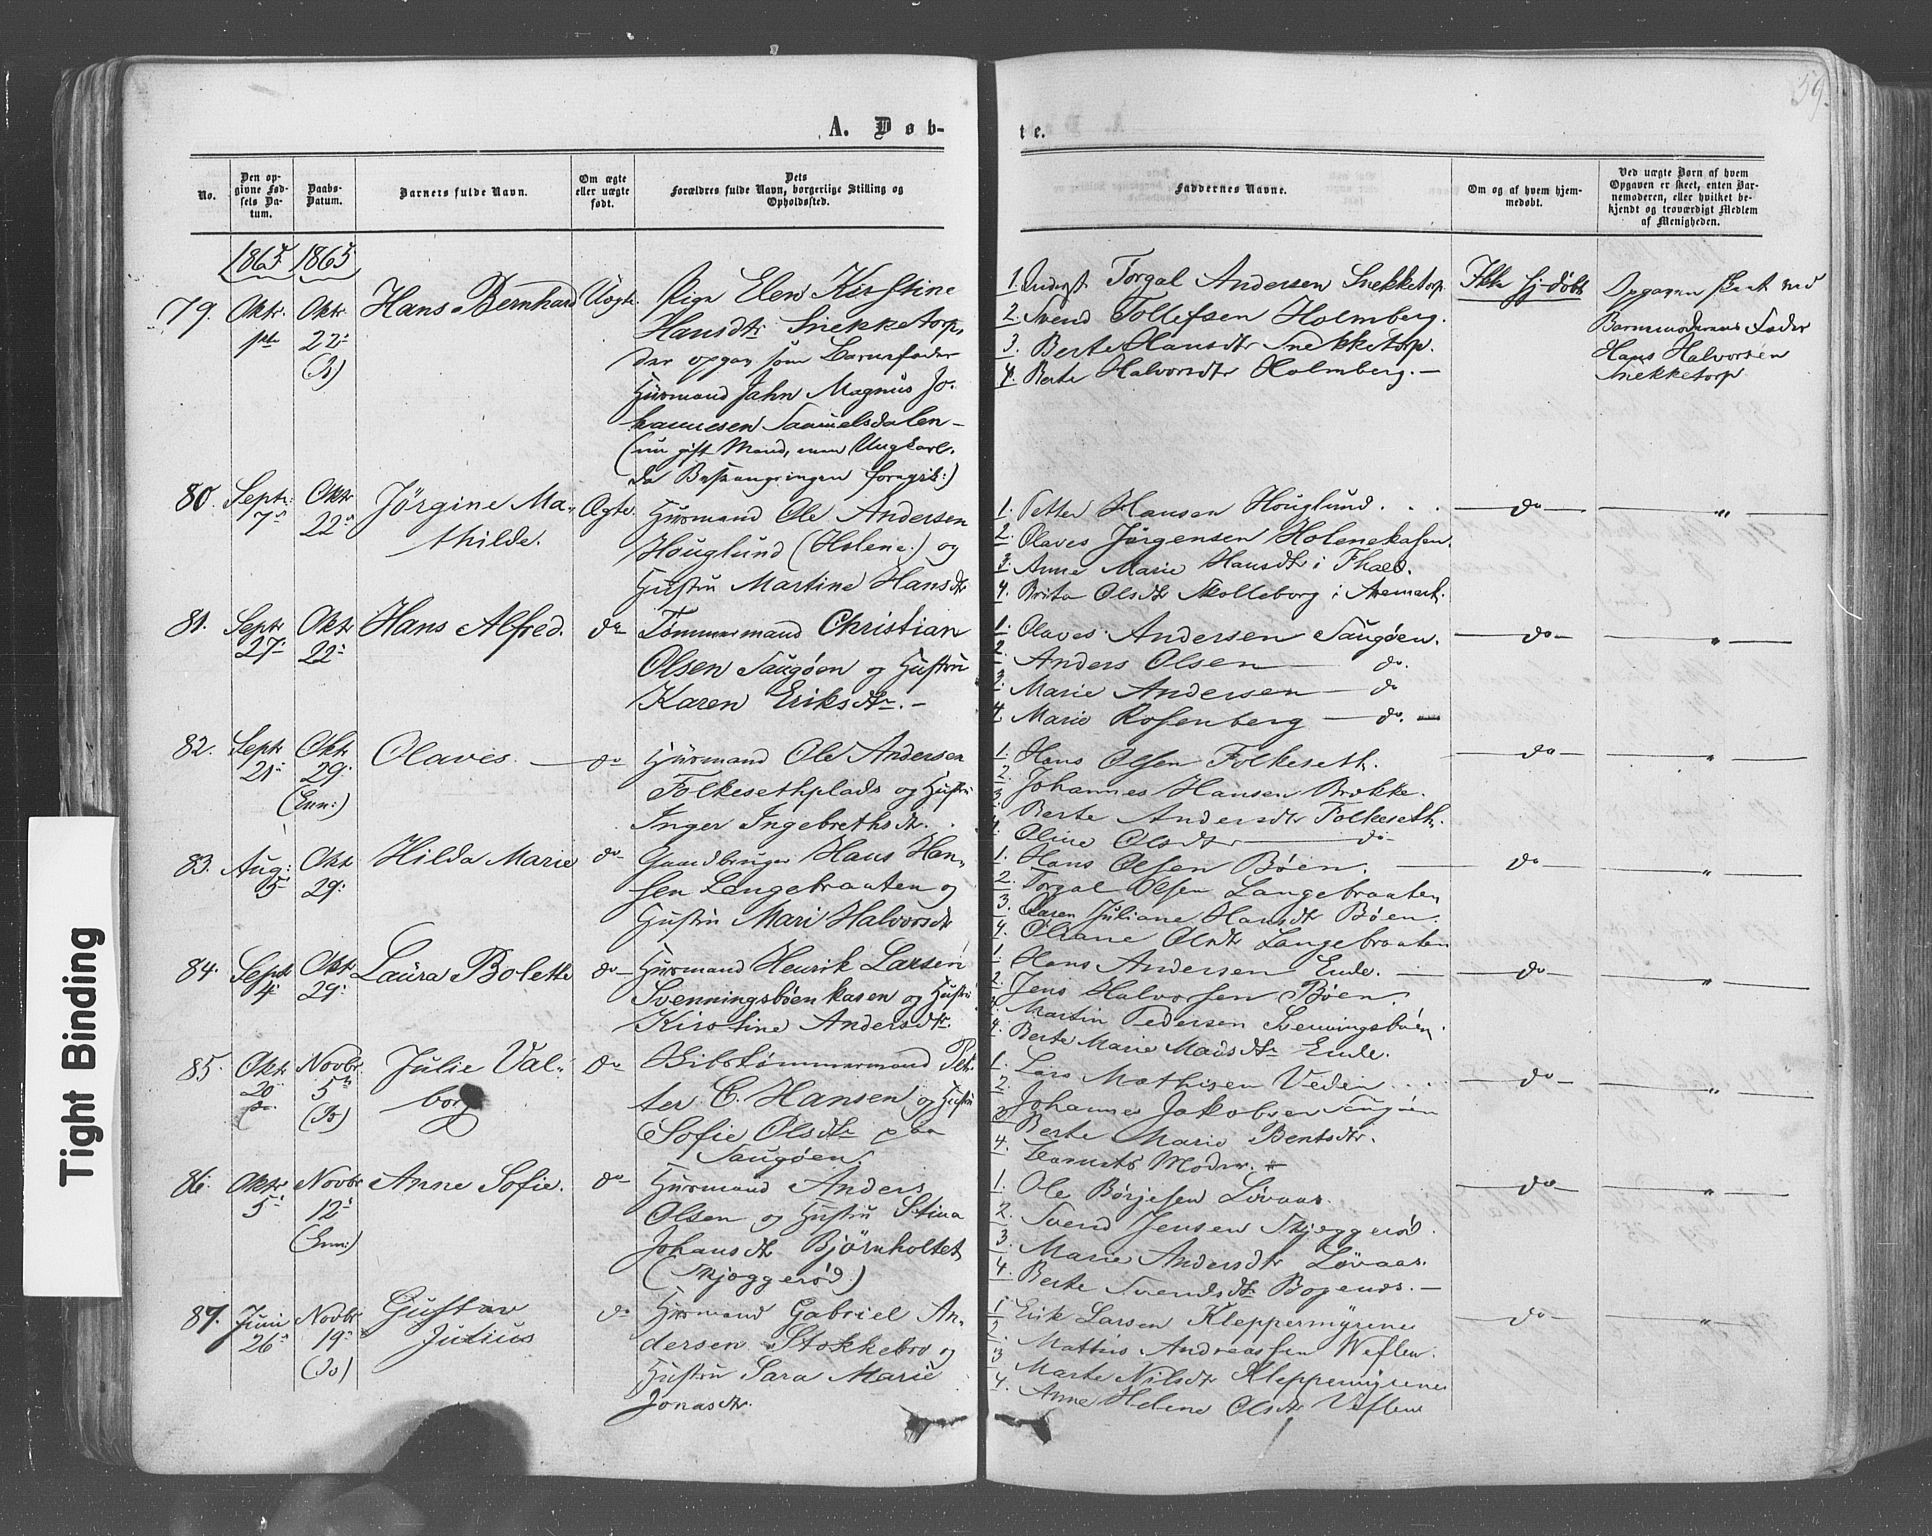 59.
A. Døb-
te.
No.
Den op-
givne Fød-
sels Da-
tum.
Daabs-
Datum.
Barnets fulde Navn.
Om ægte
eller uægte
født.
Dets
Forældres fulde Navn, borgerlige Stilling og
Opholdssted.
Faddernes Navne.
Om og af hvem hjem-
medøbt.
Ved uægte Børn af hvem
Opgaven er skeet, enten Bar-
nemoderen, eller hvilket be-
kjendt og troværdigt Medlem
af Menigheden.
1865. 1865
79. Oktr. Oktr. 22 Hans Bernhard Uægte
Pige Elen Kirstine
Hansdtr Snekketorp,
der opgav som Barnefader
Husmand Jahn Magnus Jo-
hannesen Saamelsdalen
(nu gift Mand, men Ungkarl,
da Besvangringen foregik:)
1. Torgal Andersen Snekketorp
2. Svend Tollefsen Holmberg.
3. Berte Hansdtr Snekketorp.
4. Berte Halvorsdtr Holmberg.
Ikke hj-døbt
Opgaven skeet ved
Barnemoderens Fader
Hans Halvorsen
Snekketorp
80. Septr: 7 Oktr 22 Jørgine Ma-
thilde. Ægte.
Husmand Ole Andersen
Houglund (Holene:) og
Hustru Martine Hansdtr
1. Petter Hansen Houglund.
2. Olaves Jørgensen Holenekasen.
3. Anne Marie Hansdtr i
4. Brita Olsdtr Skolleborg i Aremark.
do "
81. Septr 27 Oktr 22 Hans Alfred. do
Tømmermand Christian
Olsen Saugøen og Hustru
Karen Eriksdtr.
1. Olaves Andersen Saugøen.
2. Anders Olsen do.
3. Marie Andersen do
4. Marie Rosenberg do.
do "
82. Septr 21 Oktr. 29. (Enn:) Olaves do
Husmand Ole Andersen
Folkesethplads og Hustru
Inger Ingebrethsdtr.
1. Hans Olsen Folkeseth.
2. Johannes Hansen Brække.
3. Berte Andersdtr Folkeseth.
4. Oline Olsdtr do
do "
83. Aug: 5 Oktr 29. Hilda Marie do
Gaardbruger Hans Han-
sen Langebraaten og
Hustru Mari Halvorsdtr
1. Hans Olsen Bøen.
2. Torgal Olsen Langebraaten
3. Juliane Hansdtr Bøen.
4. Oliane Olsdtr Langebraaten
do "
84. Septr 4 Oktr. 29. Laura Bolette do
Husmand Henrik Larsen
Svenningsbøenkasen og Hustru
Kirstine Andersdtr.
1. Hans Andersen Ende.
2. Jens Halvorsen Bøen.
3. Martin Pedersen Svenningsbøen.
4. Berte Marie Madsdtr Ende.
do "
85. Oktr 20 Novbr 5 Julie Val-
borg do
Skibstømmermand Pet-
ter C. Hansen og Hustru
Sofie Olsdtr paa
Saugøen.
1. Lars Mathisen Veden
2. Johannes Jakobsen Saugøen
3. Berte Marie Bentsdtr.
4. Barnets Moder.
do "
86. Oktr 5 Novbr 12 (Enn:) Anne Sofie. do
Husmand Anders
Olsen og Hustru Stina
Johansdtr Bjørnholtet
(Skjøggerød.)
1. Ole Børjesen Løvaas.
2. Svend Jensen Skjøggerød.
3. Marie Andersdtr Løvaas.
4. Berte Svendsdtr
do "
87. Juni 26 Novbr 19 Gustav
Julius do
Husmand Gabriel An-
dersen Stokkebro og
Hustru Sara Marie
Jonasdtr.
1. Erik Larsen Kleppermyrene
2. Mathis Andreassen Veflen.
3. Marte Nilsdtr Kleppermyrene
4. Anne Helene Olsdtr Veflen
do "
Tight Binding